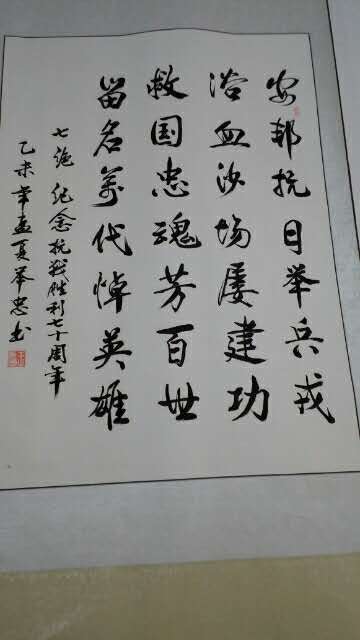 安邦抗日举兵戎
浴血沙场屡建功
救国忠魂芳百世
留名万代悼英雄
七绝 纪念抗战胜利七十周年
乙未年孟夏举忠书